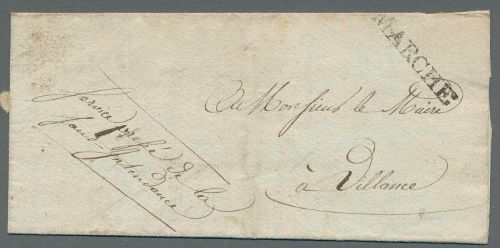 MARCHE
A Monsieur le Maire
à Villance
Service de la
Sous-Intendance